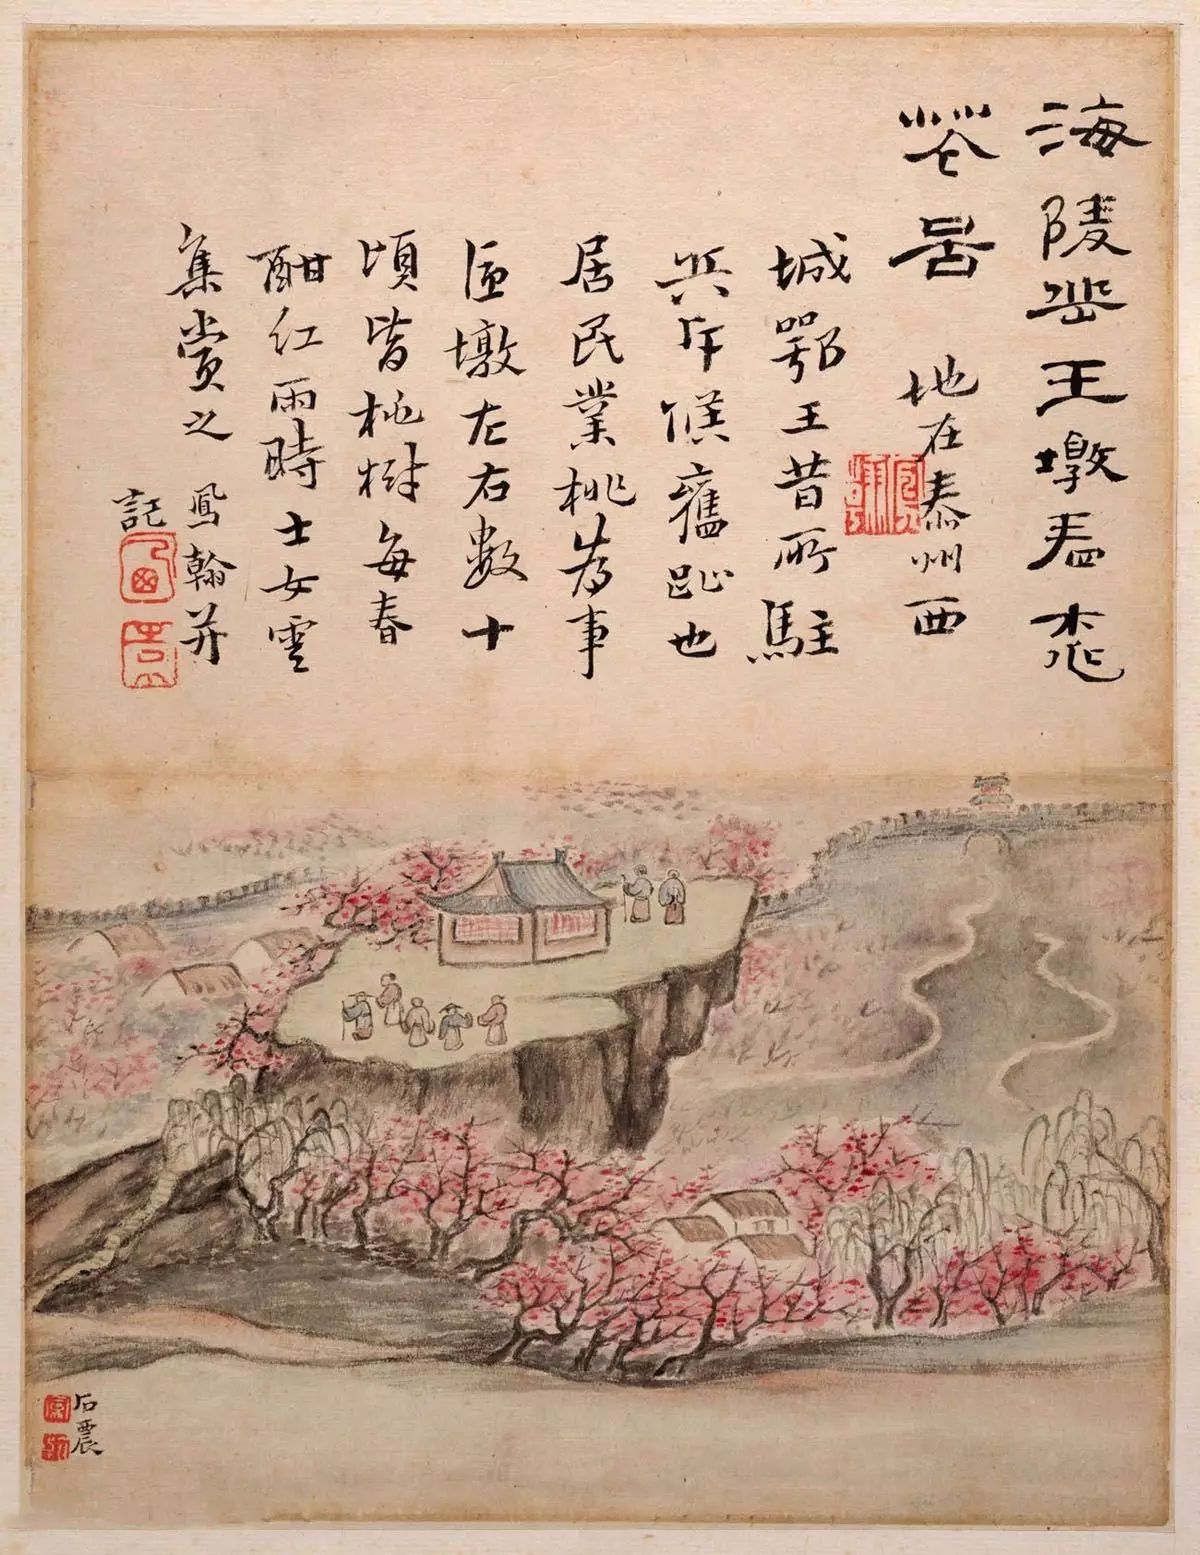 海陵岳王墩看桃
花啚 地在泰州西
城鄂王昔所駐
兵斥候舊趾也
居民業桃為事
匝墩左右數十
頃皆桃樹每春
酣红雨時士女雲
集賞之 鳳翰并
記
石震